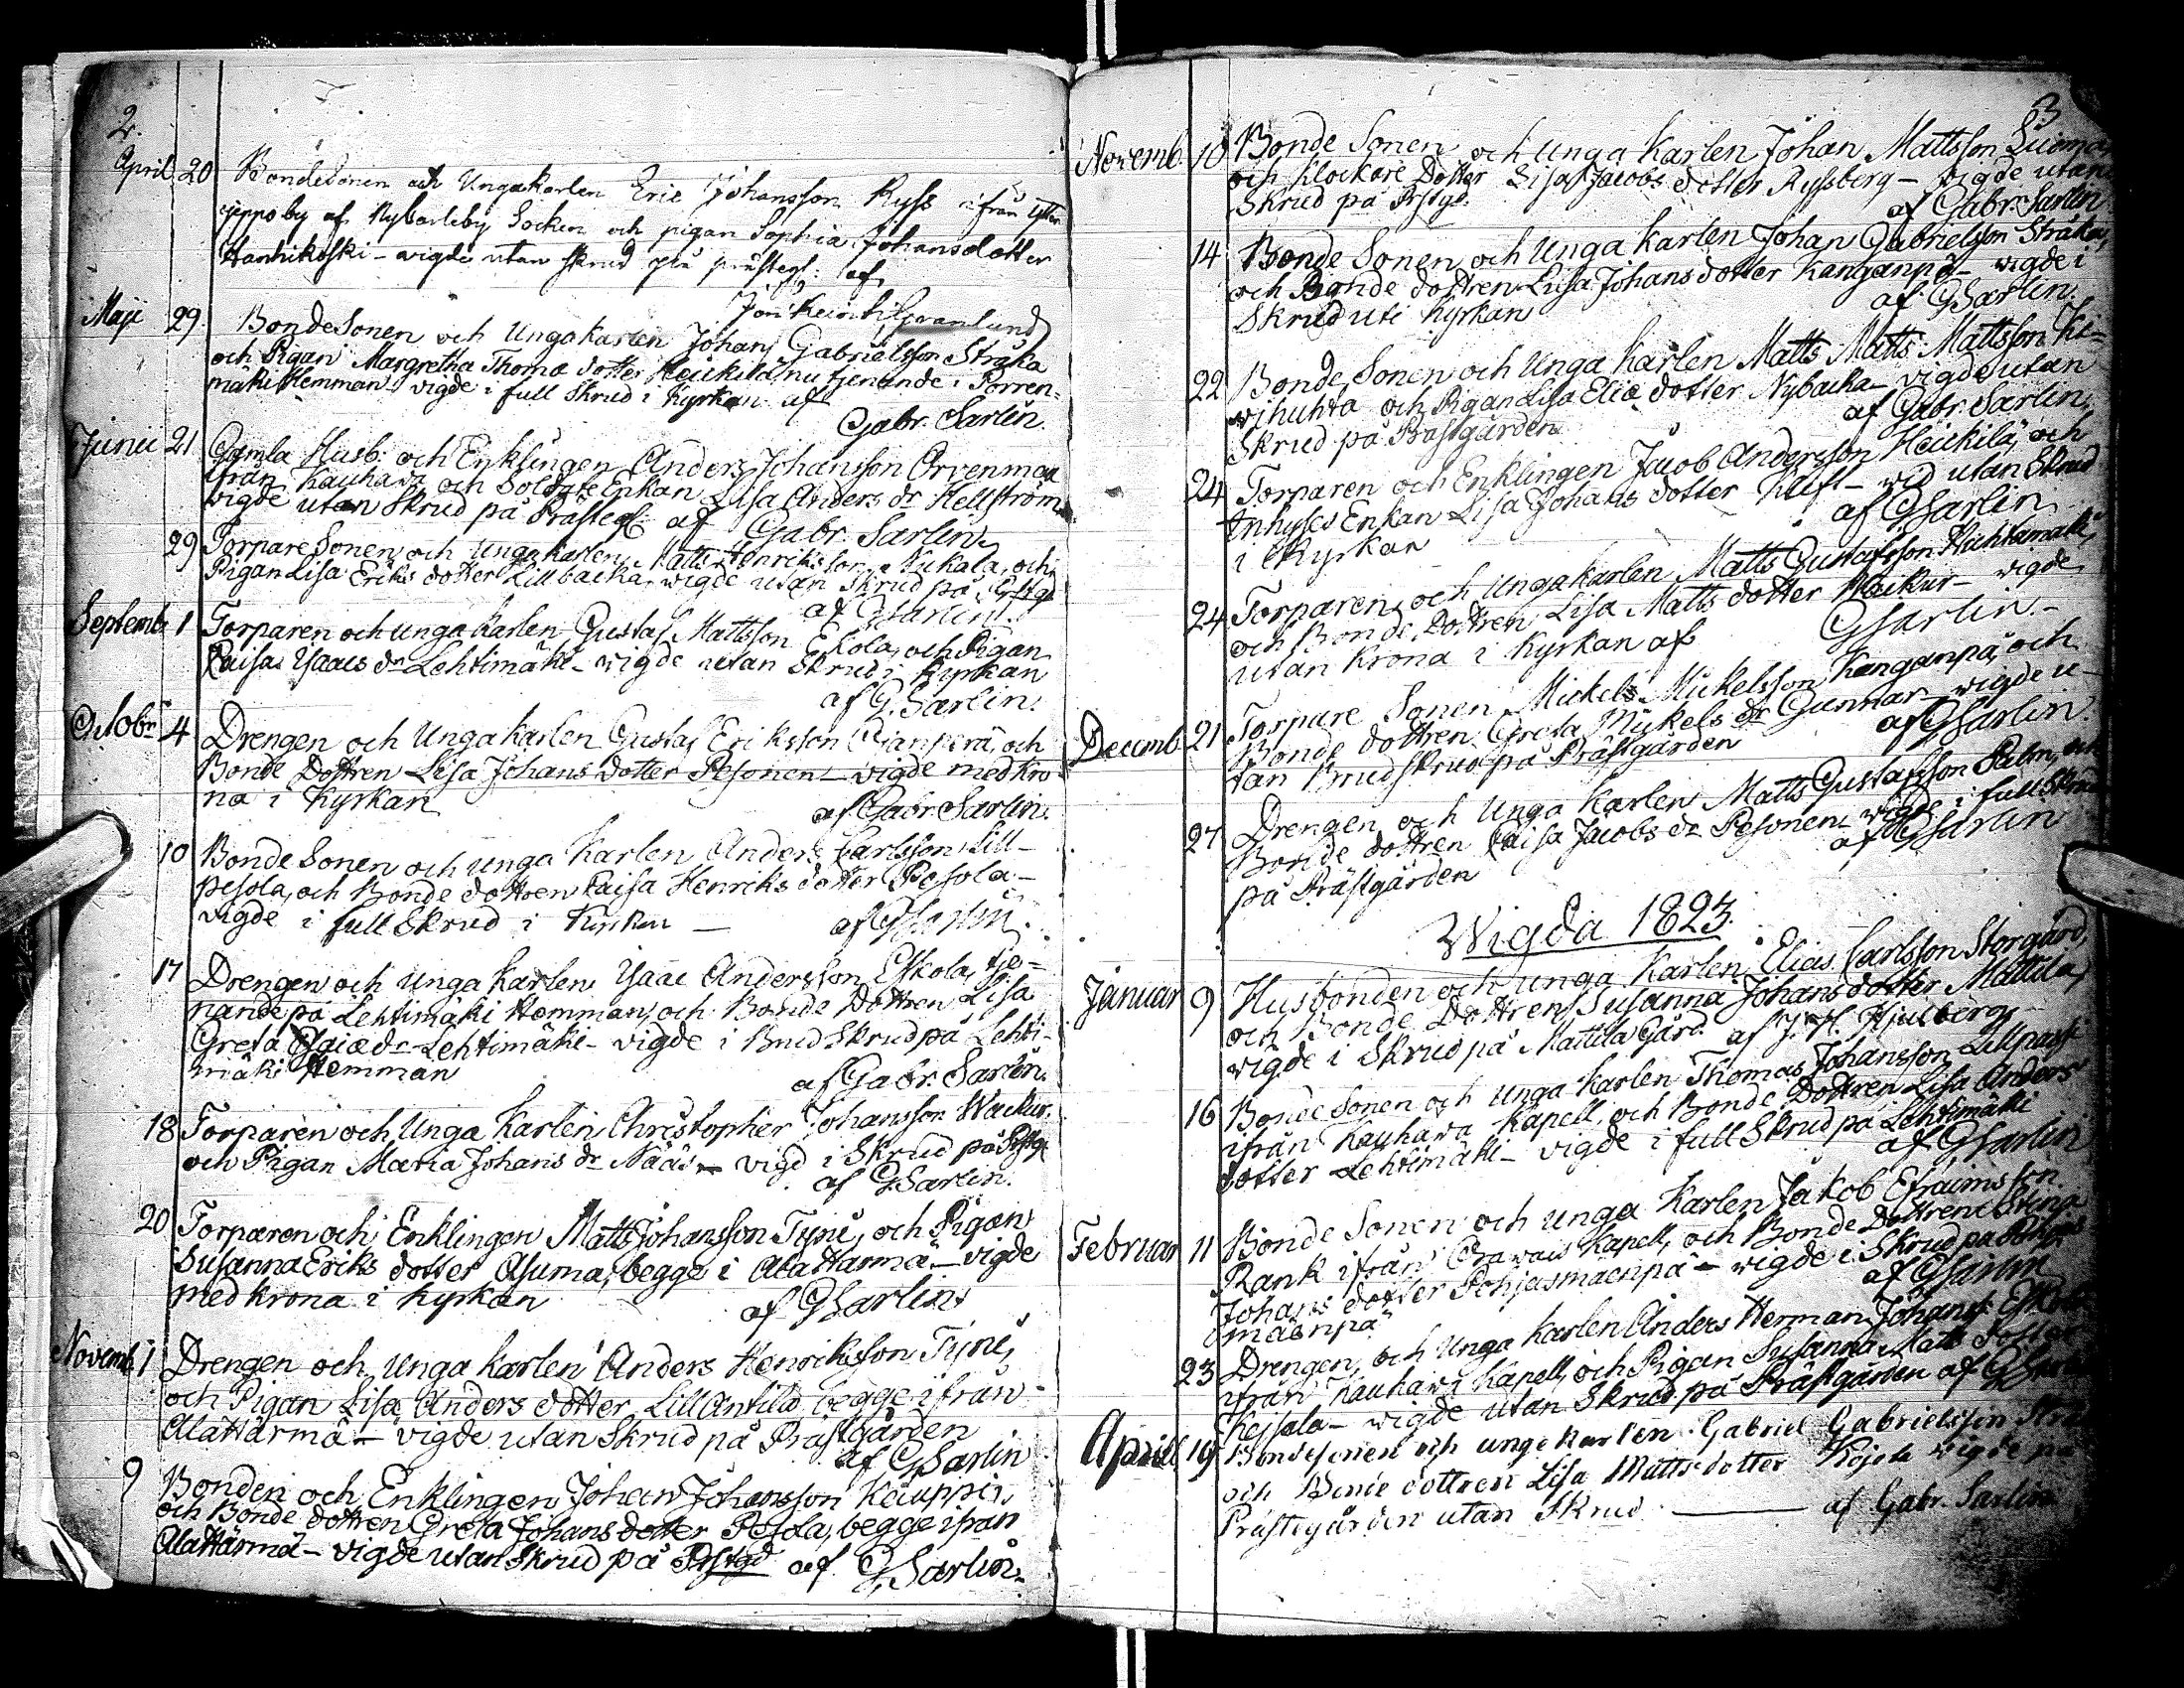 2.
April 20 Bondesonen och Ungakarlen Eric Johansson Ryss ifrån Ytter
jeppo by af Nykarleby Socken och pigan Sophia Johansdotter
Hanhikoski - wigde utan skrud på prästeg: af
Granlund
Maji 29 Bonde Sonen och Unga karlen Johan Gabrielsson Stråka
och Pigan Margretha Thomæ dotter Heikkilä nu tjenande i Porren-
mäki Hemman - vigde i full Skrud i Kyrkan af
Gabr. Sarlin.
Junii 21 Gamla Husb: och Enklingen Anders Johansson Orvenmaa
ifrån Kauhava och Soldate Enkan Lisa Anders dr Hellström
vigde utan Skrud på Prästeg: af Gabr. Sarlin
29 Torpare Sonen och Unga karlen Matts Henriksson Nukala, och
Pigan Lisa Eriks dotter Lillbacka wigde utan Skrud på Prstgd
af GSarlin.
Septemb. 1 Torparen och Unga karlen Gustaf Mattsson Ekola, och Pigan
Caisa Ysaacs dr Lehtimäki - wigde utan Skrud i Kyrkan
af G. Sarlin.
Octobr 4 Drengen och Unga karlen Gustaf Eriksson Pianperä, och
Bonde Dottren Lisa Johans dotter Pesonen - vigde med Kro
na i Kyrkan af Gabr. Sarlin.
10 Bonde Sonen och Unga Karlen Anders Carlsson Lill-
pesola, och Bonde dottren Caisa Henriks dotter Pesola -
vigde i full Skrud i Kyrkan - af GSarlin.
17 Drengen och Unga Karlen Ysaac Andersson Eskola, tje-
nande på Lehtimäki Hemman, och Bonde Dottren Lisa
Greta Esaiæ dr Lehtimäki - vigde i Brud Skrud på Lehti-
mäki Hemman af Gabr. Sarlin.
18 Torparen och Unga Karlen Christopher Johansson Wackur
och Pigan Maria Johans dr Nääs - vigd i Skrud på Pstg
af GSarlin.
20 Torparen och Enklingen Matts Johansson Tyni, och Pigan
Susanna Eriks dotter Asuma, begge i Alahärmä - vigde
med krona i Kyrkan af GSarlin.
Novemb. 1 Drengen och Unga Karlen Anders Henriksson Tyni,
och Pigan Lisa Anders dotter Lillantila begge ifrån
Alahärmä - vigde utan Skrud på Prästgården
af GSarlin
9 Bonden och Enklingen Johan Johansson Kauppi,
och Bonde dottren Greta Johans dotter Pesola, begge ifrån
Alahärmä - vigde utan Skrud på Prstgd af GSarlin.
3
Novemb. 10 Bonde Sonen och Unga Karlen Johan Mattsson Luoma,
och Klockare Dotter Lisa Jacobs dotter Ryssberg - vigde utan
Skrud på Prstgd. af Gabr: Sarlin
14 Bonde Sonen och Unga Karlen Johan Gabrielsson Stråka,
och Bonde dottren Lisa Johans dotter Kanganpä - vigde i
Skrud uti Kyrkan af GSarlin.
22 Bonde Sonen och Unga Karlen Matts Matts Mattsson Ki-
wihuhta och Pigan Lisa Eliæ dotter Nybacka - vigde utan
Skrud på Prästgården af Gabr. Sarlin.
24 Torparen och Enklingen Jacob Andersson Heickilä, och
Inhyses Enkan Lisa Johans dotter Kluft - vid utan Skrud
i Kyrkan af GSarlin
24 Torparen och Unga karlen Matts Gustafsson Huhtamäki,
och Bonde Dottren Lisa Matts dotter Wackur - vigde
utan Krona i Kyrkan af GSarlin. -
Decemb. 21 Torpare Sonen Mickels Mickelsson Kanganpä, och
Bonde dottren Greta Mickels dr Gunnar - wigde u-
tan Brudskrud på Prästgården af GSarlin.
27 Drengen och Unga Karlen Matts Gustafsson Palm, och
Bonde dottren Caisa Jacobs dr Pesonen - vigde i full Skrud
på Prästgården af GSarlin
Wigda 1823.
Januar 9 Husbonden och Unga Karlen Elias Carlsson Storgård,
och Bonde Dottren Susanna Johans dotter Mattila,
wigde i Skrud på Mattila Gård. af J. H. Hjulberg
16 Bonde Sonen och Unga Karlen Thomas Johansson Lillpassi
ifrån Kauhava Kapell, och Bonde Dottren Lisa Anders
dotter Lehtimäki - vigde i full Skrud på Lehtimäki
af GSarlin
Februar 11 Bonde Sonen och Unga Karlen Jakob Efraimsson
Rank ifrån Orawais Kapell, och Bonde Dottren Stina
Johans dotter Pohjasmaenpä - wigde i Skrud på Pohjas
maenpä af GSarlin
23 Drengen och Unga Karlen Anders Herman Johanss: Eskola
ifrån Kauhava Kapell, och Pigan Susanna Matts dotter
Kejsala - wigde utan Skrud på Prästgården af GSarlin
April 19 Bondesonen och unge karlen Gabriel Gabrielsson Strå
och Bonde dottren Lisa Mattsdotter Kojola wigde på
Prästegården utan Skrud - af Gabr. Sarlin